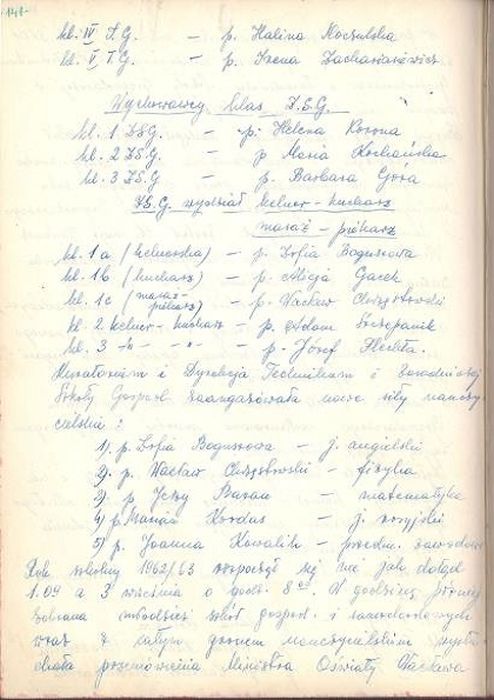 kl. IV T.G. — p. Halina Koczulska
kl. V T.G. — p. Irena Zachariasiewicz
Wychowawcy klas Z.S.G.
kl. 1 ZSG. — p. Helena Korona
kl. 2 ZSG. — p. Maria Kochańska
kl. 3 ZSG — p. Barbara Góra
Z.S.G. wydział kelner-kucharz
masaż-piekarz
kl. 1a (kelnerska) — p. Zofia Boguszowa
kl. 1b (kucharz) — p. Alicja Gacek
kl. 1c — p. Wacław Chrzęstowski
kl. 2 kelner-kucharz — p. Adam Szczepanik
kl. 3 -"- -"- — p. Józef
Kuratorium i Dyrekcja Technikum i Zasadniczej
Szkoły Gospod. zaangażowała nowe siły nauczy-
cielskie:
1) p. Zofia Boguszowa — j. angielski
2) p. Wacław Chrzęstowski — fizyka
3) p. Jerzy Baran — matematyka
4) p. Marian Kordas — j. rosyjski
5) p. Joanna Kowalik — przedm. zawodowe
Rok szkolny 1962/63 rozpoczął się nie jako dotąd
1.09 a 3 września o godz. 8 00. O godzinie
zebrana młodzież szkół gospod. i zawodowych
wraz z całym gronem nauczycielskim wysłu-
chała przemówienia Ministra Oświaty Wacława